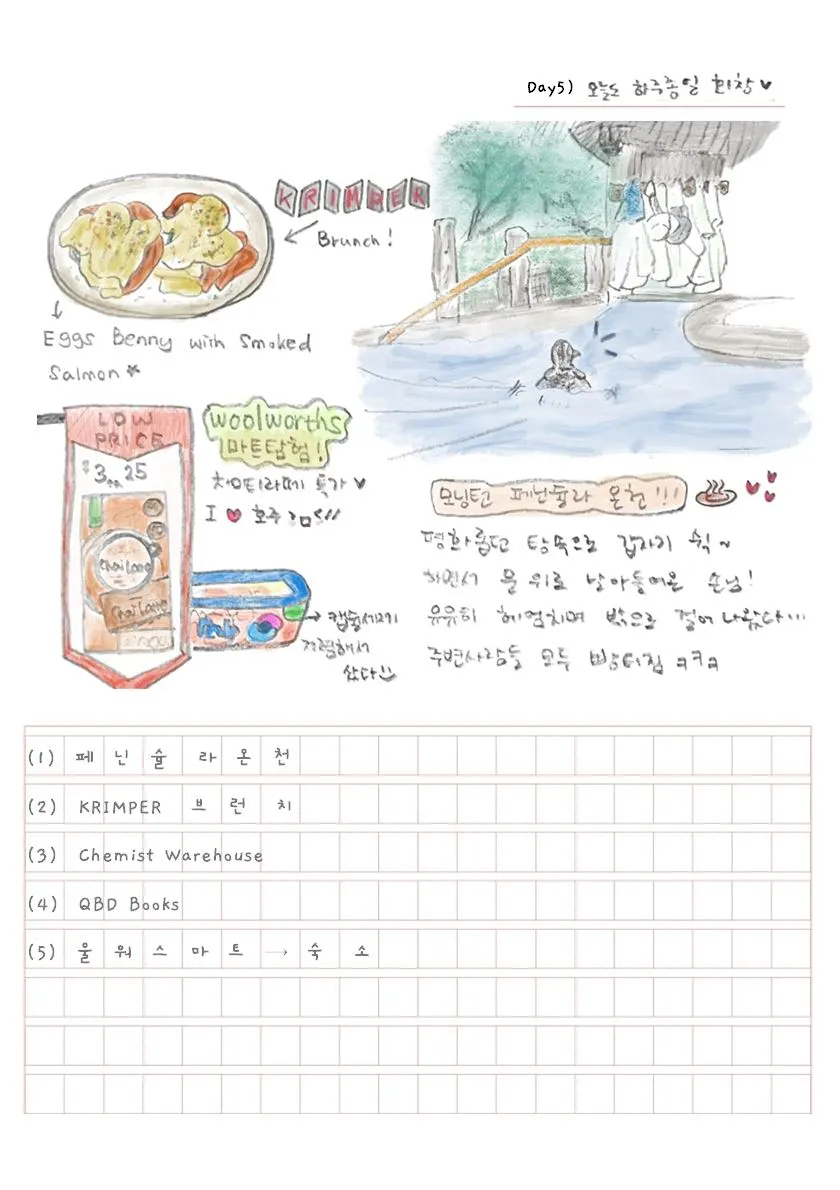 Day5) 오늘도 하루종일 화창♥
KRIMPER
Brunch!
Eggs Benny with Smoked
Salmon
LOW
PRICE
$3.25
Chai Latte
Chai Latte
woolworths
마트탐험!
차이티라떼 특가♥
I ♥ 호주
캡슐세제
저렴해서
샀다
모닝턴 페닌슐라 온천!!!
평화롭던 탕속으로 갑자기 쉭~
하면서 물 위로 날아들어온 손님!
유유히 헤엄치며 밖으로 걸어 나갔다...
주변사람들 모두 빵터짐 ㅋㅋㅋ
(1) 페닌슐라온천
(2) KRIMPER 브런치
(3) Chemist Warehouse
(4) QBD Books
(5) 울워스마트 → 숙소